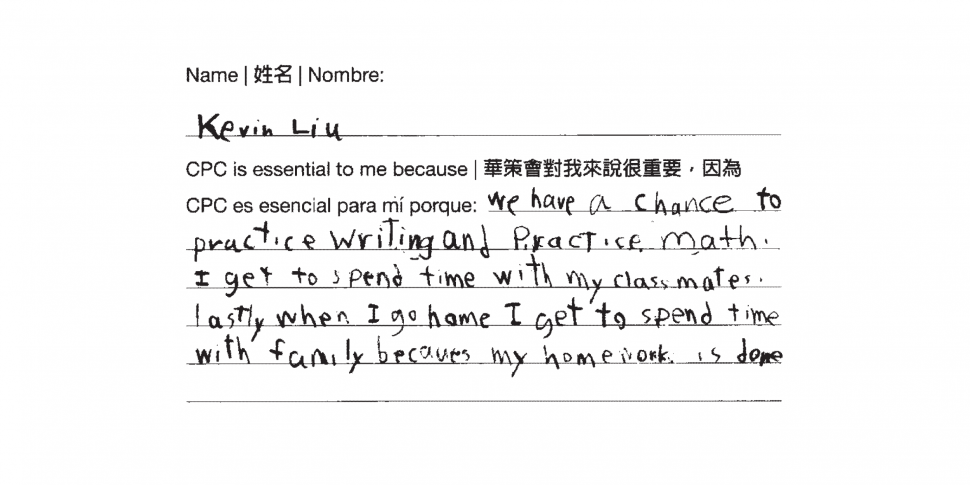 Name | 姓名 | Nombre:
Kevin Liu
CPC is essential to me because | 華策會對我來說很重要，因為
CPC es esencial para mí porque: We have a chance to
practice writing and Practice math.
I get to spend time with my classmates.
lastly when I go home I get to spend time
with family becaues my homework is done